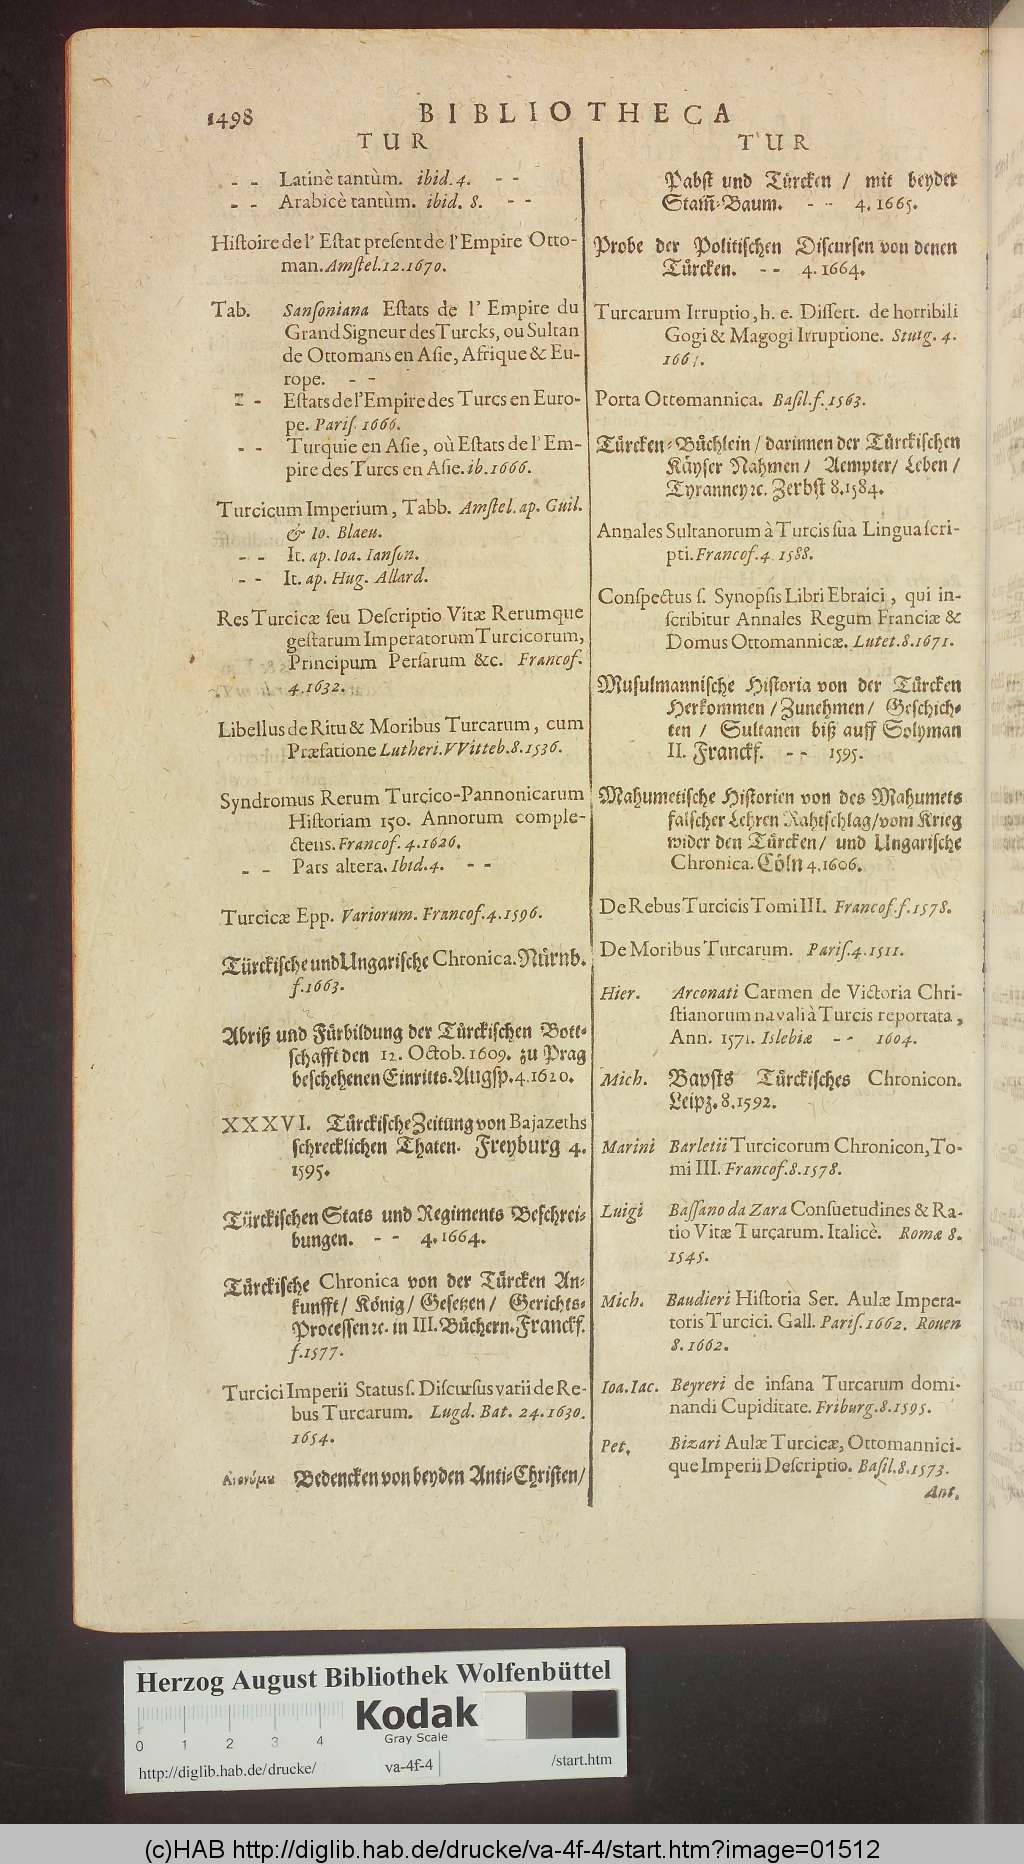 1498
BIBLIOTHECA
TUR
- - Latinè tantùm. ibid. 4. - -
- - Arabicè tantùm. ibid. 8. - -
Histoire de l' Estat present de l' Empire Otto-
man. Amstel. 12. 1670.
Tab. Sansoniana Estats de l' Empire du
Grand Signeur des Turcks, ou Sultan
de Ottomans en Asie, Afrique & Eu-
rope. - -
- - Estats de l' Empire des Turcs en Euro-
pe. Paris. 1666.
- - Turquie en Asie, où Estats de l' Em-
pire des Turcs en Asie. ib. 1666.
Turcicum Imperium, Tabb. Amstel. ap. Guil.
& Io. Blaeu.
- - It. ap. Ioa. Ianson.
- - It. ap. Hug. Allard.
Res Turcicæ seu Descriptio Vitæ Rerumque
gestarum Imperatorum Turcicorum,
Principum Persarum &c. Francof.
4. 1632.
Libellus de Ritu & Moribus Turcarum, cum
Præfatione Lutheri. VVitteb. 8. 1536.
Syndromus Rerum Turcico-Pannonicarum
Historiam 150. Annorum comple-
ctens. Francof. 4. 1626.
- - Pars altera. Ibid. 4. - -
Turcicæ Epp. Variorum. Francof. 4. 1596.
Türckische und Ungarische Chronica. Nürnb.
f. 1663.
Abriß und Fürbildung der Türckischen Bott-
schafft den 12. Octob. 1609. zu Prag
beschehenen Einritts. Augsp. 4. 1620.
XXXVI. Türckische Zeitung von Bajazeths
schrecklichen Thaten. Freyburg 4.
1595.
Türckischen Stats und Regiments Beschrei-
bungen. - - 4. 1664.
Türckische Chronica von der Türcken An-
kunfft / König / Gesetzen / Gerichts-
Processen ꝛc. in III. Büchern. Franckf.
f. 1577.
Turcici Imperii Status s. Discursus varii de Re-
bus Turcarum. Lugd. Bat. 24. 1630.
1654.
Bedencken von beyden Anti-Christen /
TUR
Pabst und Türcken / mit beyder
Stam̃-Baum. - - 4. 1665.
Probe der Politischen Discursen von denen
Türcken. - - 4. 1664.
Turcarum Irruptio, h. e. Dissert. de horribili
Gogi & Magogi Irruptione. Stutg. 4.
Porta Ottomannica. Basil. f. 1563.
Türcken-Büchlein / darinnen der Türckischen
Käyser Nahmen / Aempter / Leben /
Tyranney ꝛc. Zerbst 8. 1584.
Annales Sultanorum à Turcis sua Lingua scri-
pti. Francof. 4. 1588.
Conspectus s. Synopsis Libri Ebraici, qui in-
scribitur Annales Regum Franciæ &
Domus Ottomannicæ. Lutet. 8. 1671.
Musulmannische Historia von der Türcken
Herkommen / Zunehmen / Geschich-
ten / Sultanen biß auff Solyman
II. Franckf. - - 1595.
Mahumetische Historien von des Mahumets
falscher Lehren Rahtschlag / vom Krieg
wider den Türcken / und Ungarische
Chronica. Cöln 4. 1606.
De Rebus Turcicis Tomi III. Francof. f. 1578.
De Moribus Turcarum. Paris. 4. 1511.
Hier. Arconati Carmen de Victoria Chri-
stianorum navali à Turcis reportata,
Ann. 1571. Islebiæ - - 1604.
Mich. Bapsts Türckisches Chronicon.
Leipz. 8. 1592.
Marini Barletii Turcicorum Chronicon, To-
mi III. Francof. 8. 1578.
Luigi Bassano da Zara Consuetudines & Ra-
tio Vitæ Turcarum. Italicè. Romæ 8.
1545.
Mich. Baudieri Historia Ser. Aulæ Impera-
toris Turcici. Gall. Paris. 1662. Rouen
8. 1662.
Ioa. Iac. Beyreri de insana Turcarum domi-
nandi Cupiditate. Friburg. 8. 1595.
Pet. Bizari Aulæ Turcicæ, Ottomannici-
que Imperii Descriptio. Basil. 8. 1573.
Ant.
Herzog August Bibliothek Wolfenbüttel
Kodak
Gray Scale
0 1 2 3 4
http://diglib.hab.de/drucke/ va-4f-4 /start.htm
(c)HAB http://diglib.hab.de/drucke/va-4f-4/start.htm?image=01512